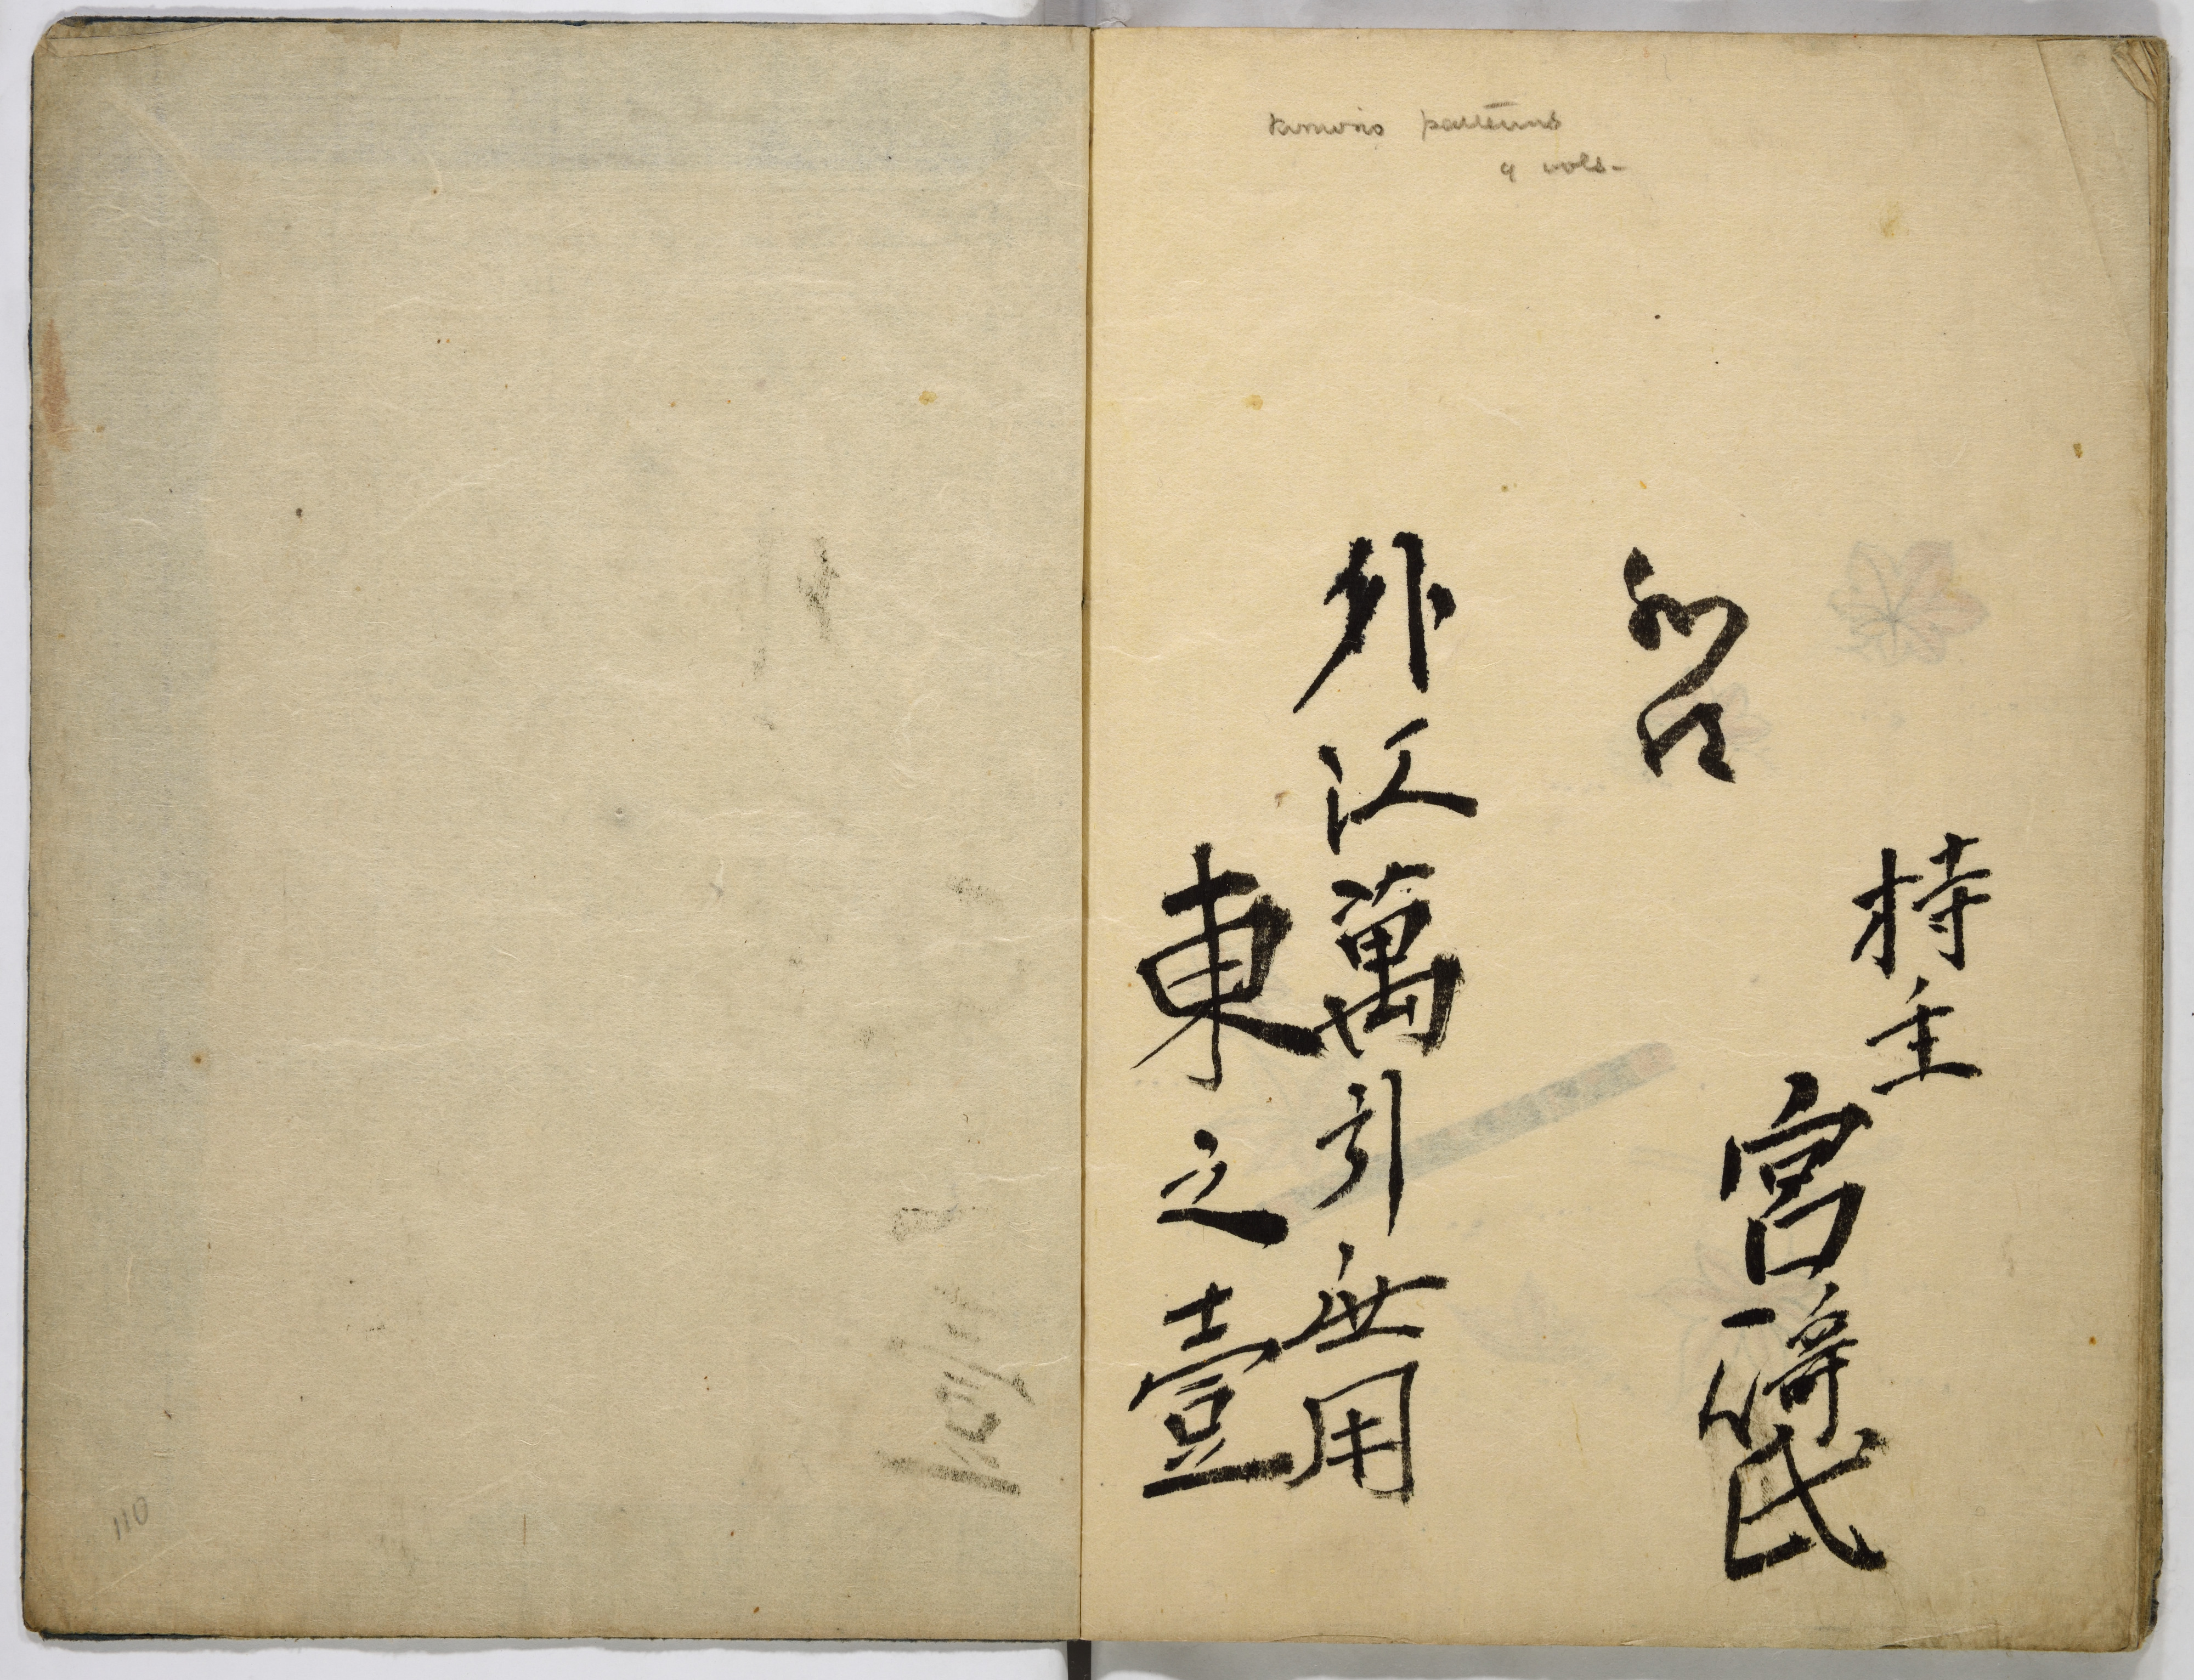 kimono patterns
9 vols-
持主
宮﨑氏
外江萬引無用
東之壹
110